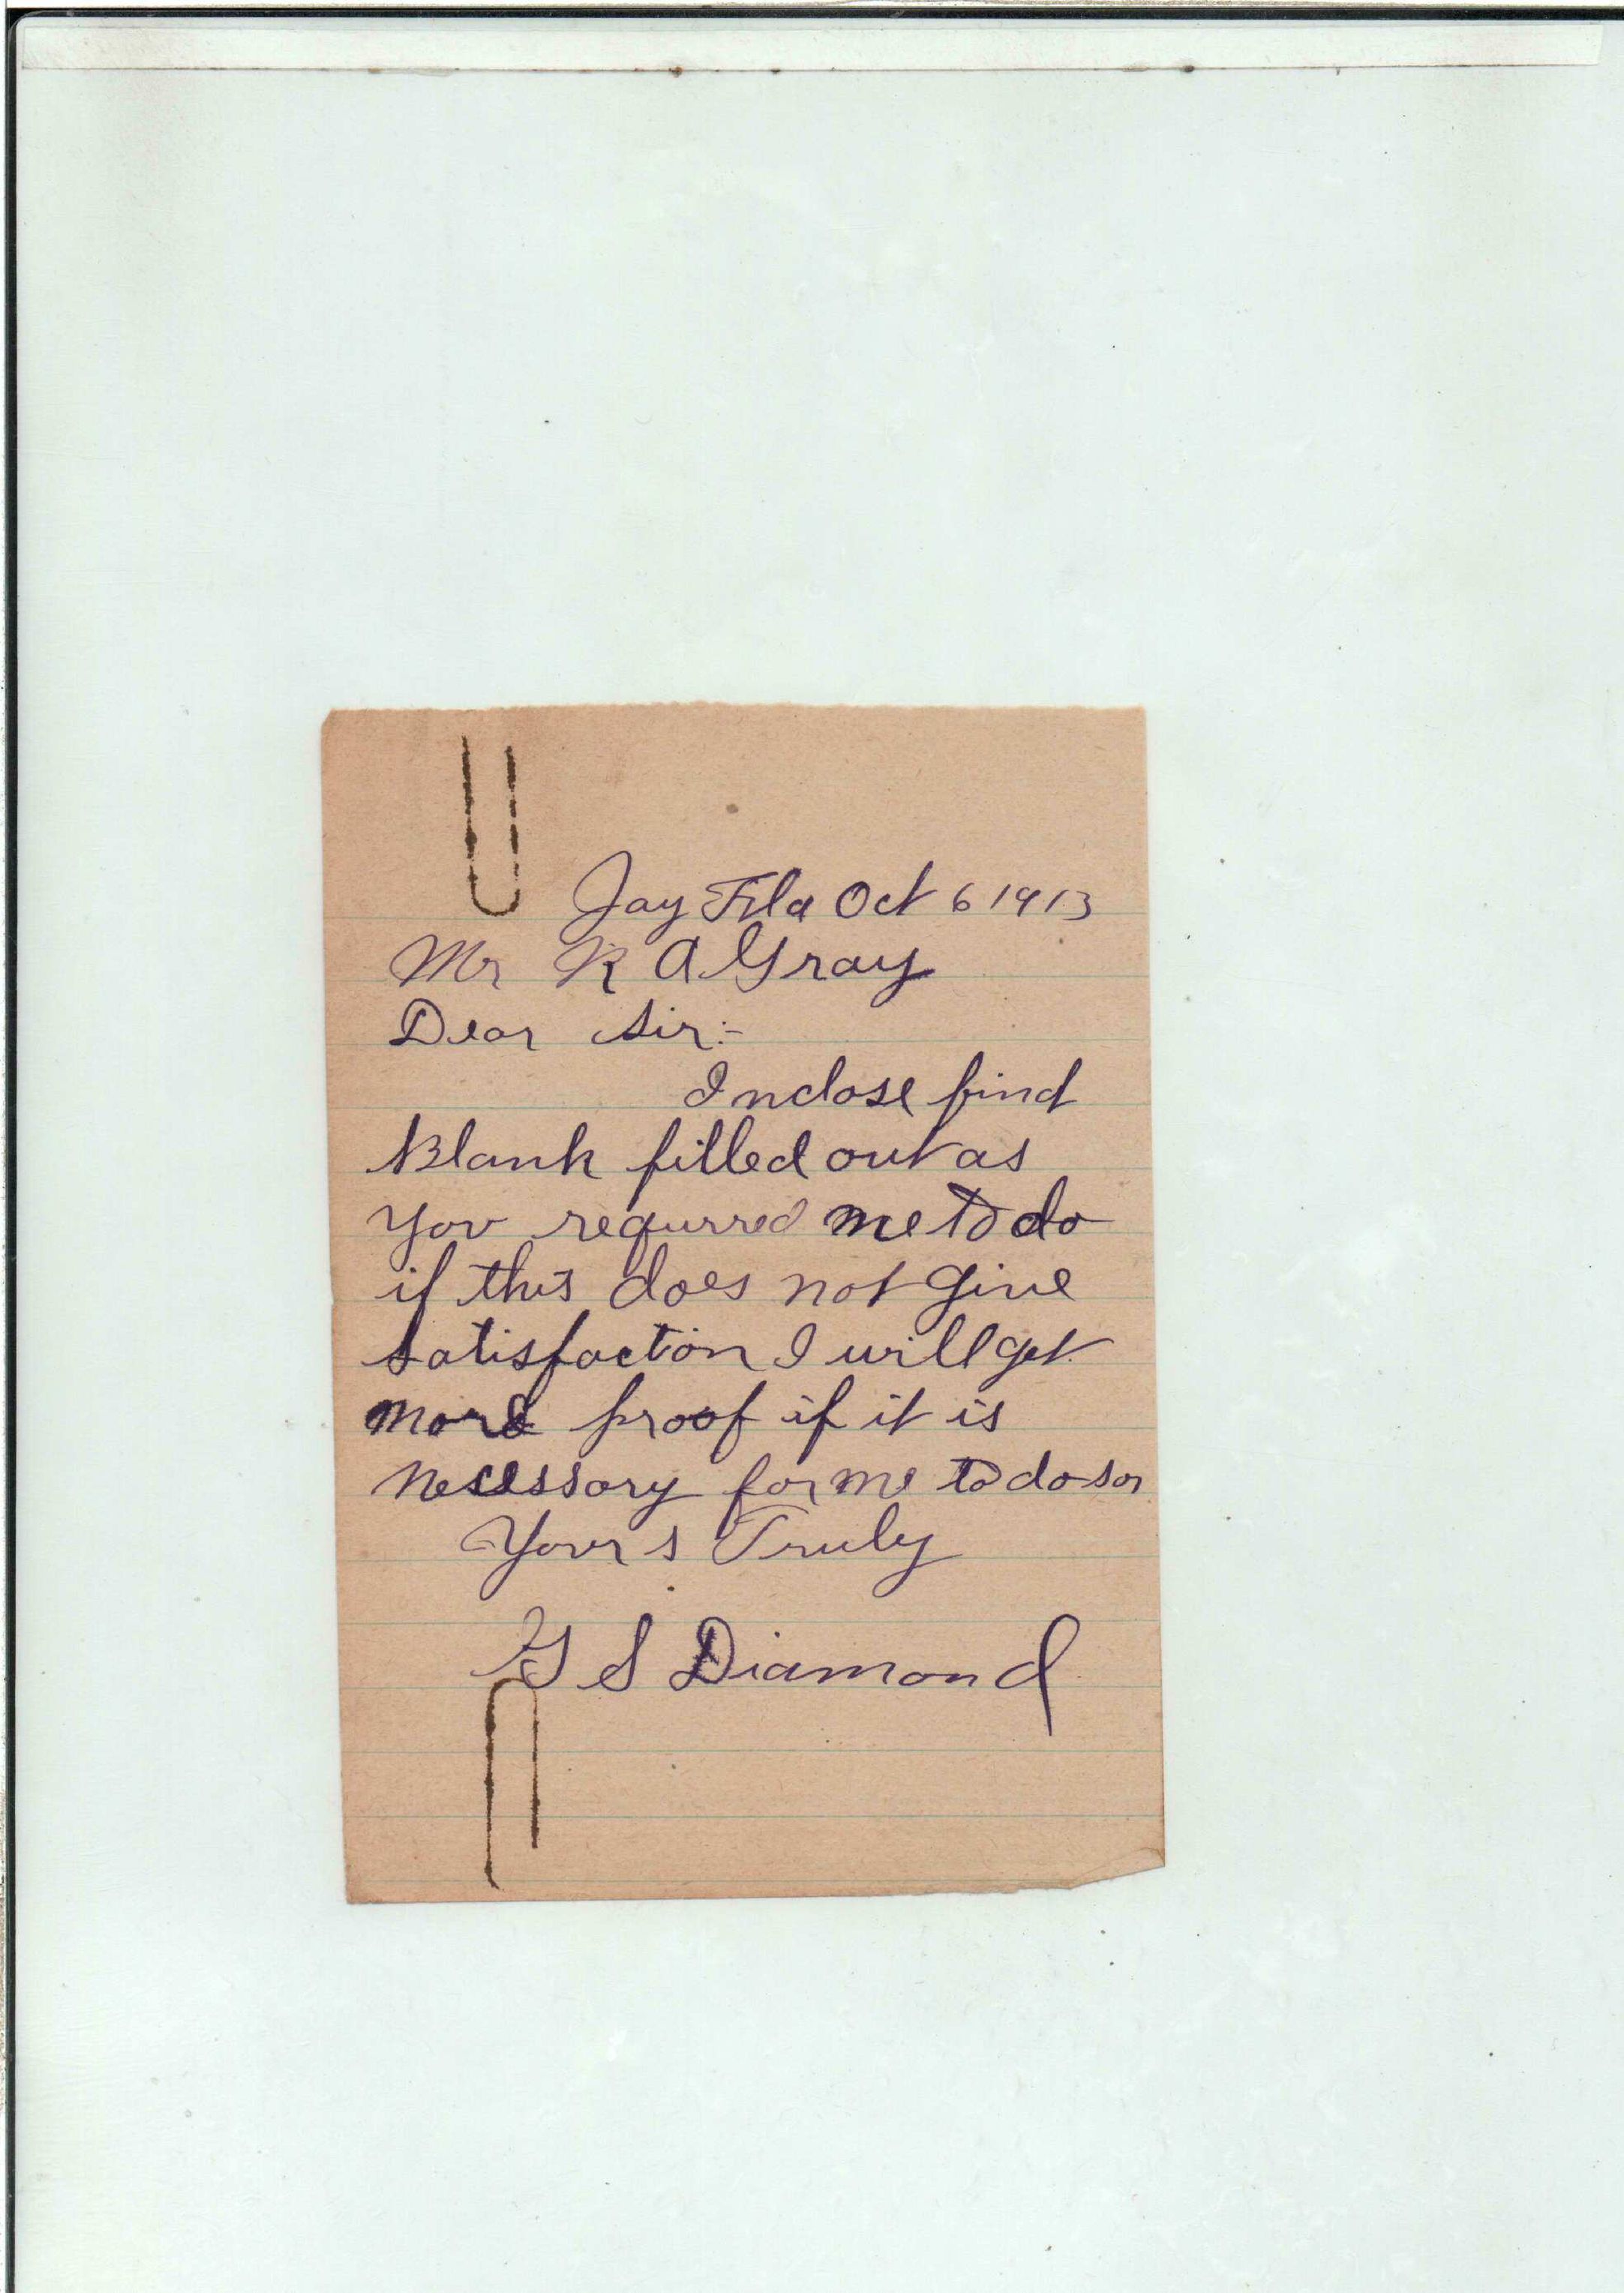 Jay Fla Oct 6 1913
Mr R A Gray
Dear Sir:-
Inclose find
Blank filled out as
you requrred me to do
if this does not give
satisfaction I will get
more proof if it is
nesessary for me to do so
Yours Truly
G S Diamond